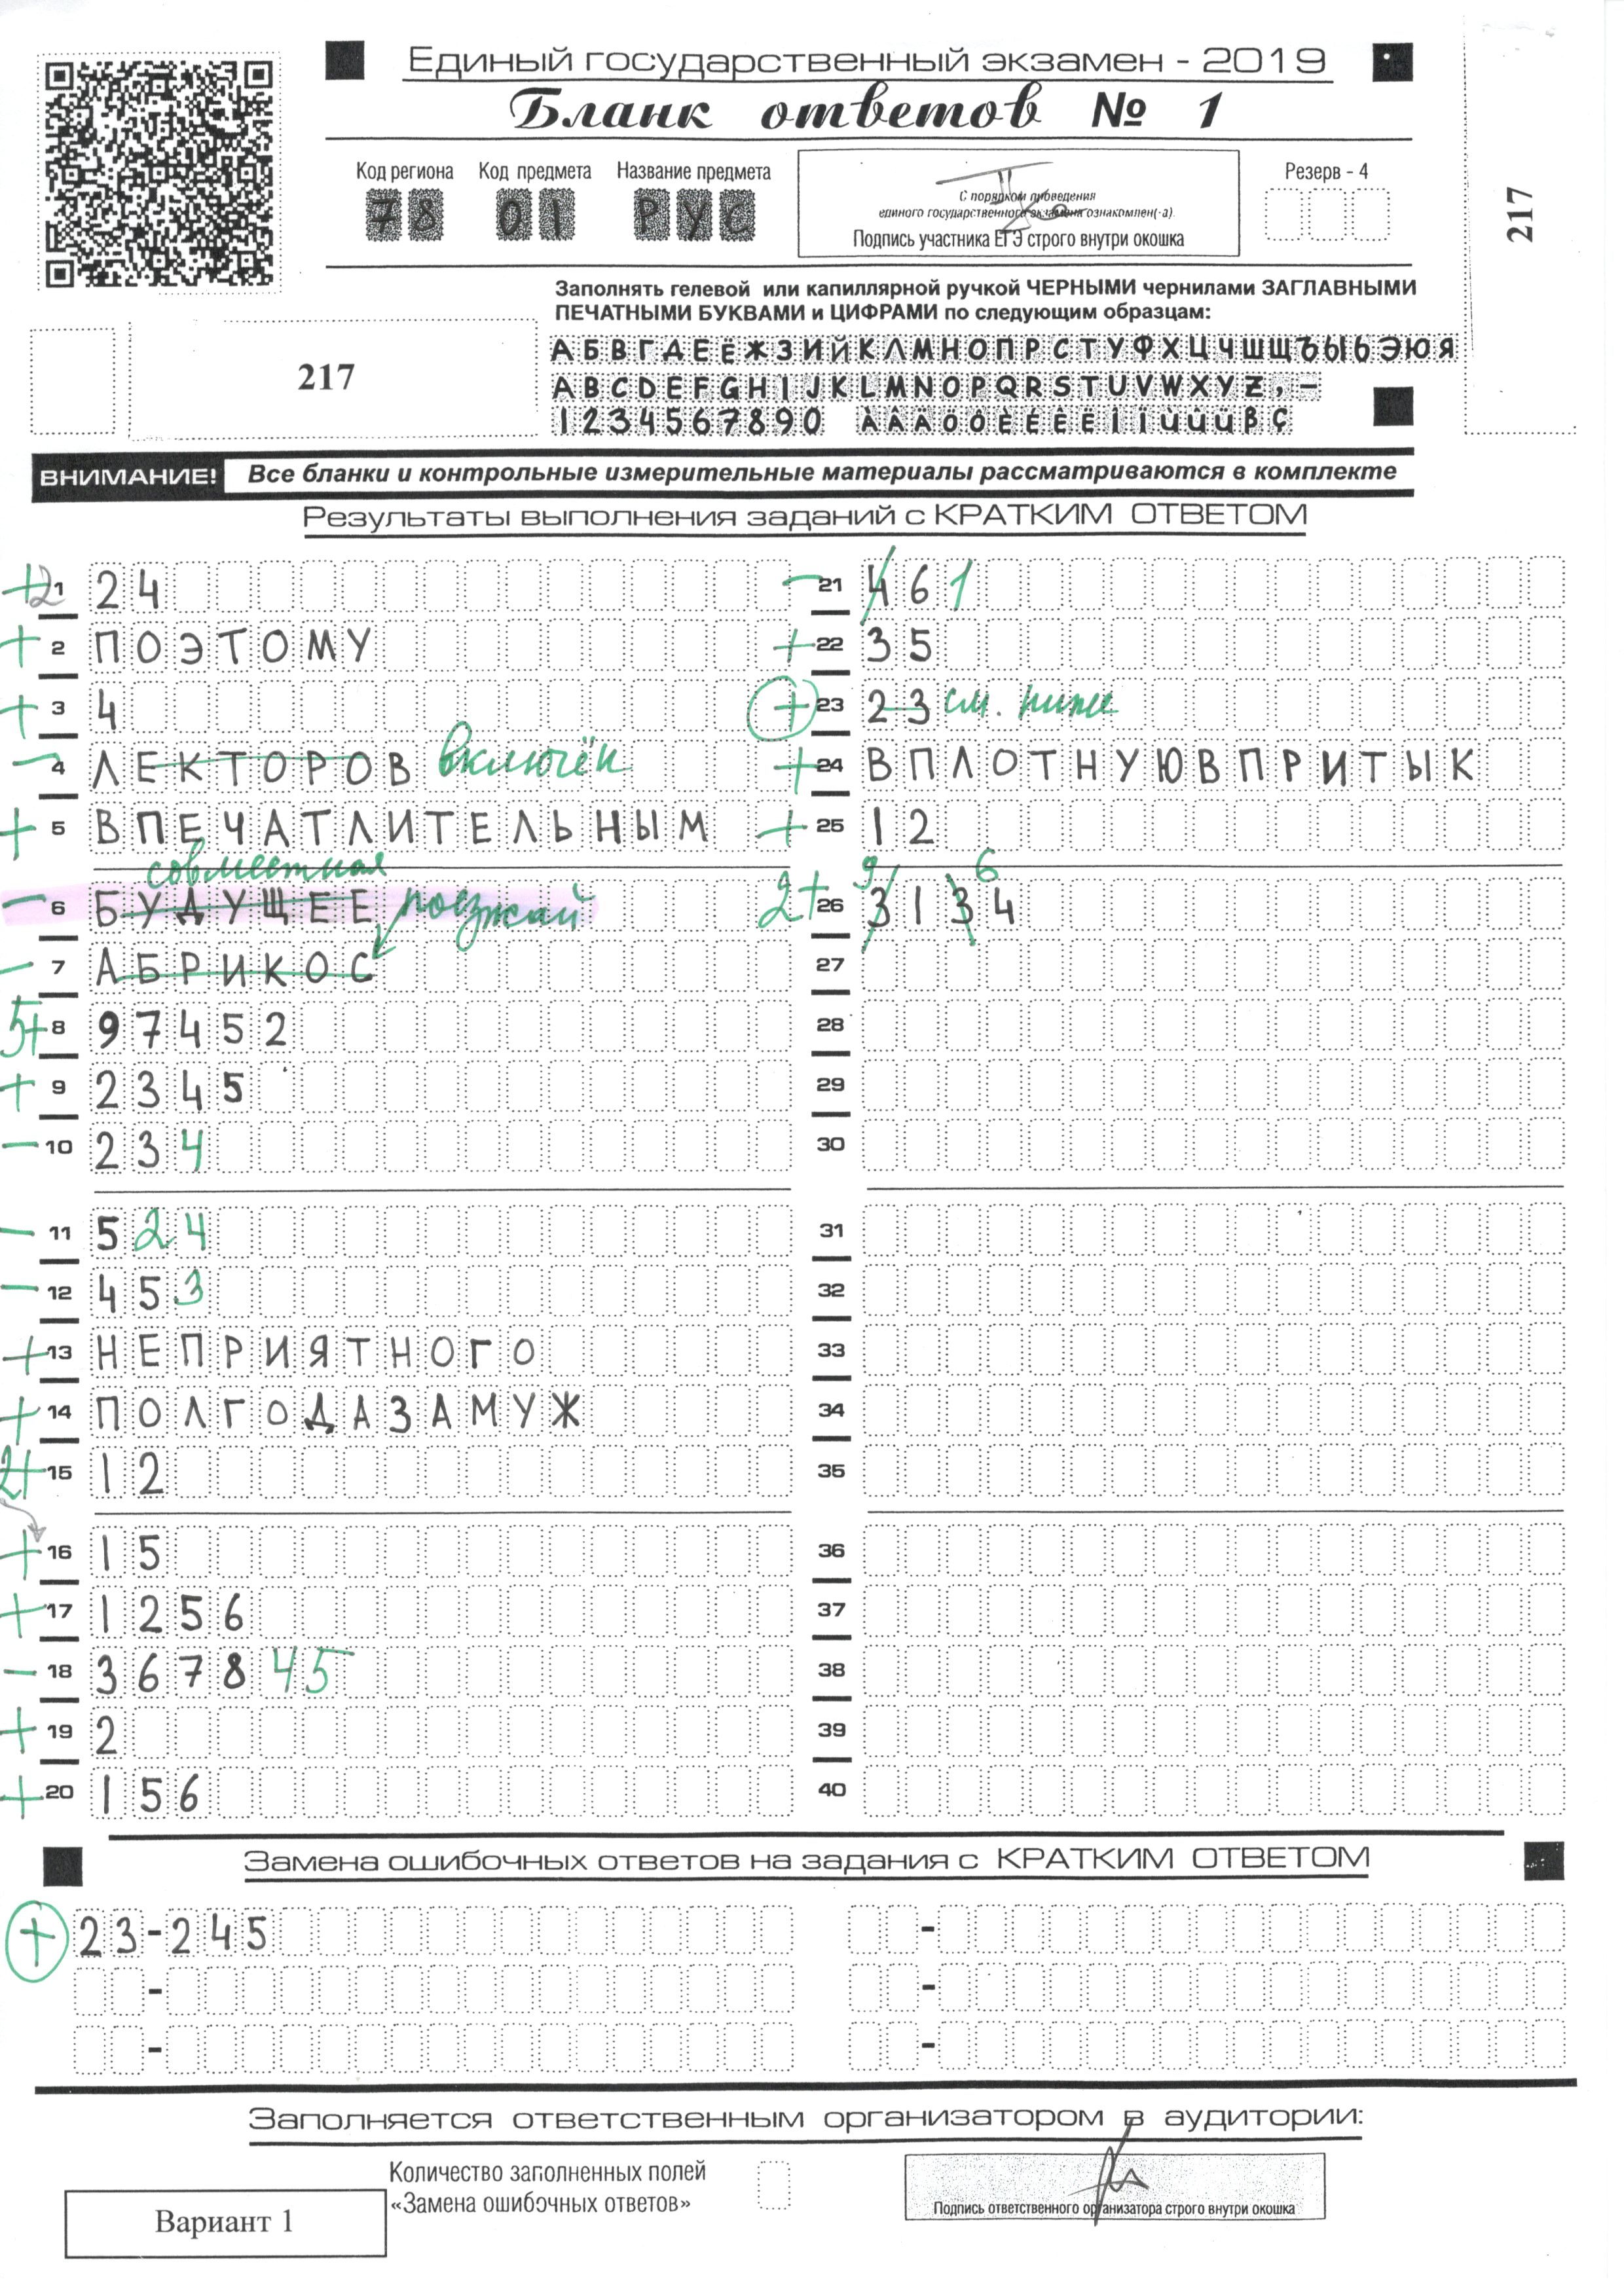 Единый государственный экзамен - 2019
Бланк ответов № 1
Код региона Код предмета Название предмета
78 01 РУС
С порядком проведения
единого государственного экзамена ознакомлен(-а)
Подпись участника ЕГЭ строго внутри окошка
Резерв - 4
217
Заполнять гелевой или капиллярной ручкой ЧЕРНЫМИ чернилами ЗАГЛАВНЫМИ
ПЕЧАТНЫМИ БУКВАМИ и ЦИФРАМИ по следующим образцам:
217
АБВГДЕЁЖЗИЙКЛМНОПРСТУФХЦЧШЩЪЫЬЭЮЯ
ABCDEFGHIJKLMNOPQRSTUVWXYZ,-
1234567890
ВНИМАНИЕ! Все бланки и контрольные измерительные материалы рассматриваются в комплекте
Результаты выполнения заданий с КРАТКИМ ОТВЕТОМ
+2 1 24
+ 2 ПОЭТОМУ
+ 3 4
- 4 ЛЕКТОРОВ включён
+ 5 ВПЕЧАТЛИТЕЛЬНЫМ
совместная
- 6 БУДУЩЕЕ поезжай
- 7 АБРИКОС
5+ 8 97452
+ 9 2345
- 10 234
- 11 524
- 12 453
+ 13 НЕПРИЯТНОГО
+ 14 ПОЛГОДАЗАМУЖ
2+ 15 12
+ 16 15
+ 17 1256
- 18 367845
+ 19 2
+ 20 156
- 21 461
+ 22 35
+ 23 23 см. ниже
+ 24 ВПЛОТНУЮВПРИТЫК
+ 25 12
9 6
2+ 26 3134
27
28
29
30
31
32
33
34
35
36
37
38
39
40
Замена ошибочных ответов на задания с КРАТКИМ ОТВЕТОМ
+ 23-245 -
- -
- -
Заполняется ответственным организатором в аудитории:
Количество заполненных полей
«Замена ошибочных ответов»
Подпись ответственного организатора строго внутри окошка
Вариант 1